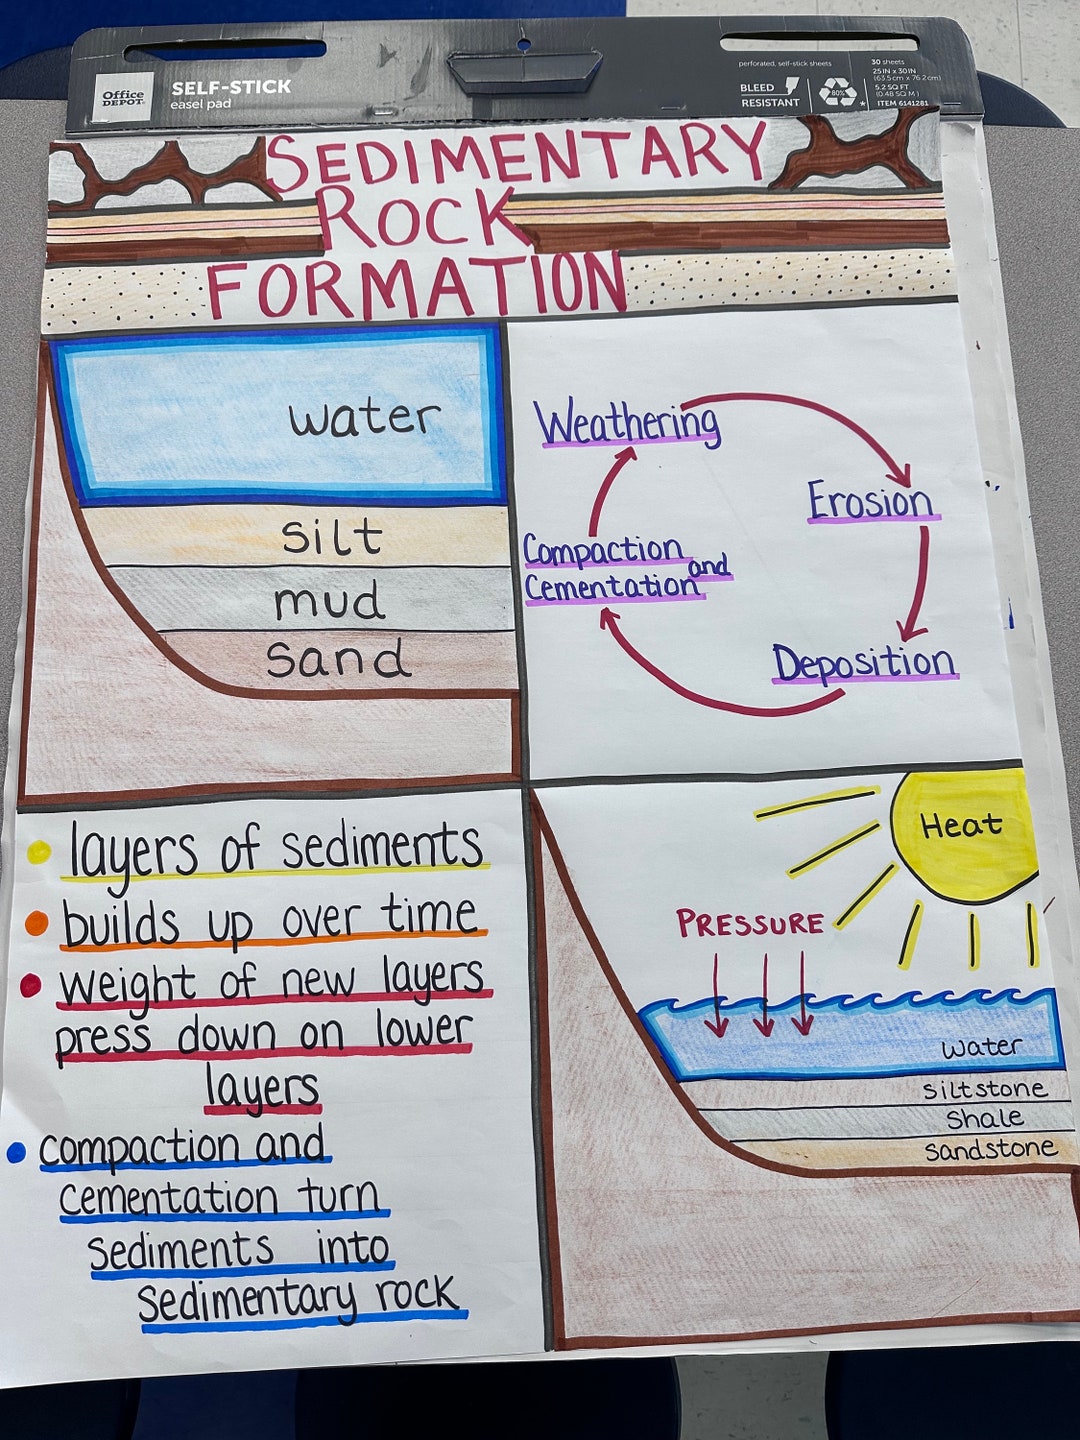 Office DEPOT
SELF-STICK
easel pad
perforated, self-stick sheets
BLEED
RESISTANT
80%
30 sheets
25 IN x 30 IN
(63.5 cm x 76.2 cm)
5.2 SQ FT
(0.48 SQ M)
ITEM 6141281
SEDIMENTARY
ROCK
FORMATION
water
silt
mud
sand
Weathering
Erosion
Deposition
Compaction and
Cementation
layers of sediments
builds up over time
weight of new layers
press down on lower
layers
compaction and
cementation turn
sediments into
sedimentary rock
Heat
PRESSURE
water
siltstone
shale
sandstone